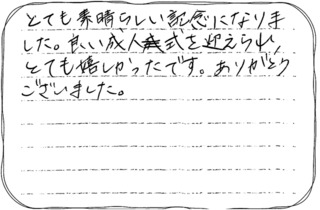 とても素晴らしい記念になりま
した。良い成人式を迎えられ、
とても嬉しかったです。ありがとう
ございました。